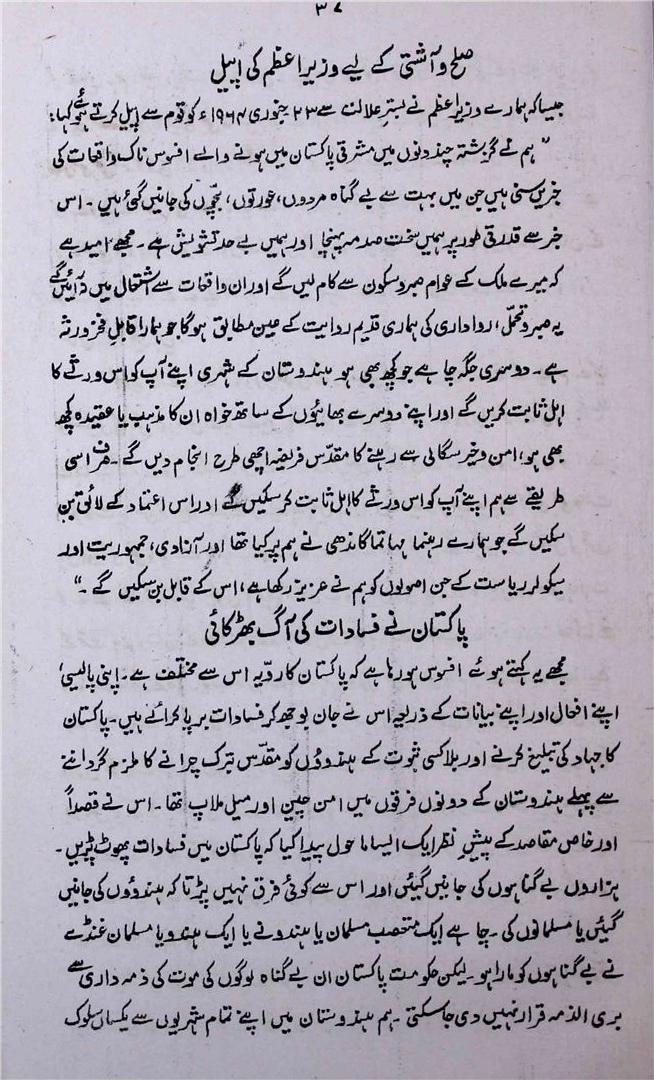 ۳۷
صلح و آشتی کے لیے وزیراعظم کی اپیل
جیسا کہ ہمارے وزیراعظم نے بستر علالت سے ۲۳ جنوری ۱۹۶۴ء کو قوم سے اپیل کرتے ہوئے کہا:
”ہم نے گزشتہ چند دنوں میں مشرقی پاکستان میں ہونے والے افسوس ناک واقعات کی
خبریں سنی ہیں جن میں بہت سے بے گناہ مردوں، عورتوں، بچّوں کی جانیں گئی ہیں۔ اس
خبر سے قدرتی طور پر ہمیں سخت صدمہ پہنچا اور ہمیں بے حد تشویش ہے۔ مجھے امید ہے
کہ میرے ملک کے عوام صبر و سکون سے کام لیں گے اور ان واقعات سے اشتعال میں نہ آئیں گے
یہ صبر و تحمّل، رواداری کی ہماری قدیم روایت کے عین مطابق ہوگا جو ہمارا قابلِ فخر ورثہ
ہے۔ دوسری جگہ چاہے جو کچھ بھی ہو ہندوستان کے شہری اپنے آپ کو اس ورثے کا
اہل ثابت کریں گے اور اپنے دوسرے بھائیوں کے ساتھ خواہ ان کا مذہب یا عقیدہ کچھ
بھی ہو، امن و خیر سگالی سے رہنے کا مقدّس فریضہ اچھی طرح انجام دیں گے۔ صرف اسی
طریقے سے ہم اپنے آپ کو اس ورثے کا اہل ثابت کر سکیں گے اور اس اعتماد کے لائق بن
سکیں گے جو ہمارے رہنما مہاتما گاندھی نے ہم پر کیا تھا اور آزادی، جمہوریت اور
سیکولر ریاست کے جن اصولوں کو ہم نے عزیز رکھا ہے، اس کے قابل بن سکیں گے۔“
پاکستان نے فسادات کی آگ بھڑکائی
مجھے یہ کہتے ہوئے افسوس ہو رہا ہے کہ پاکستان کا رویّہ اس سے مختلف ہے۔ اپنی پالیسی،
اپنے افعال اور اپنے بیانات کے ذریعہ اس نے جان بوجھ کر فسادات برپا کرائے ہیں۔ پاکستان
کا جہاد کی تبلیغ کرنے اور بلا کسی ثبوت کے ہندوؤں کو مقدّس تبرک چرانے کا ملزم گرداننے
سے پہلے ہندوستان کے دونوں فرقوں میں امن چین اور میل ملاپ تھا۔ اس نے قصداً
اور خاص مقاصد کے پیشِ نظر ایک ایسا ماحول پیدا کیا کہ پاکستان میں فسادات پھوٹ پڑیں۔
ہزاروں بے گناہوں کی جانیں گئیں اور اس سے کوئی فرق نہیں پڑتا کہ ہندوؤں کی جانیں
گئیں یا مسلمانوں کی۔ چاہے ایک متعصب مسلمان یا ہندو نے یا ایک ہندو یا مسلمان غنڈے
نے بے گناہوں کو مارا ہو۔ لیکن حکومت پاکستان ان بے گناہ لوگوں کی موت کی ذمہ داری سے
بری الذمہ قرار نہیں دی جا سکتی۔ ہم ہندوستان میں اپنے تمام شہریوں سے یکساں سلوک